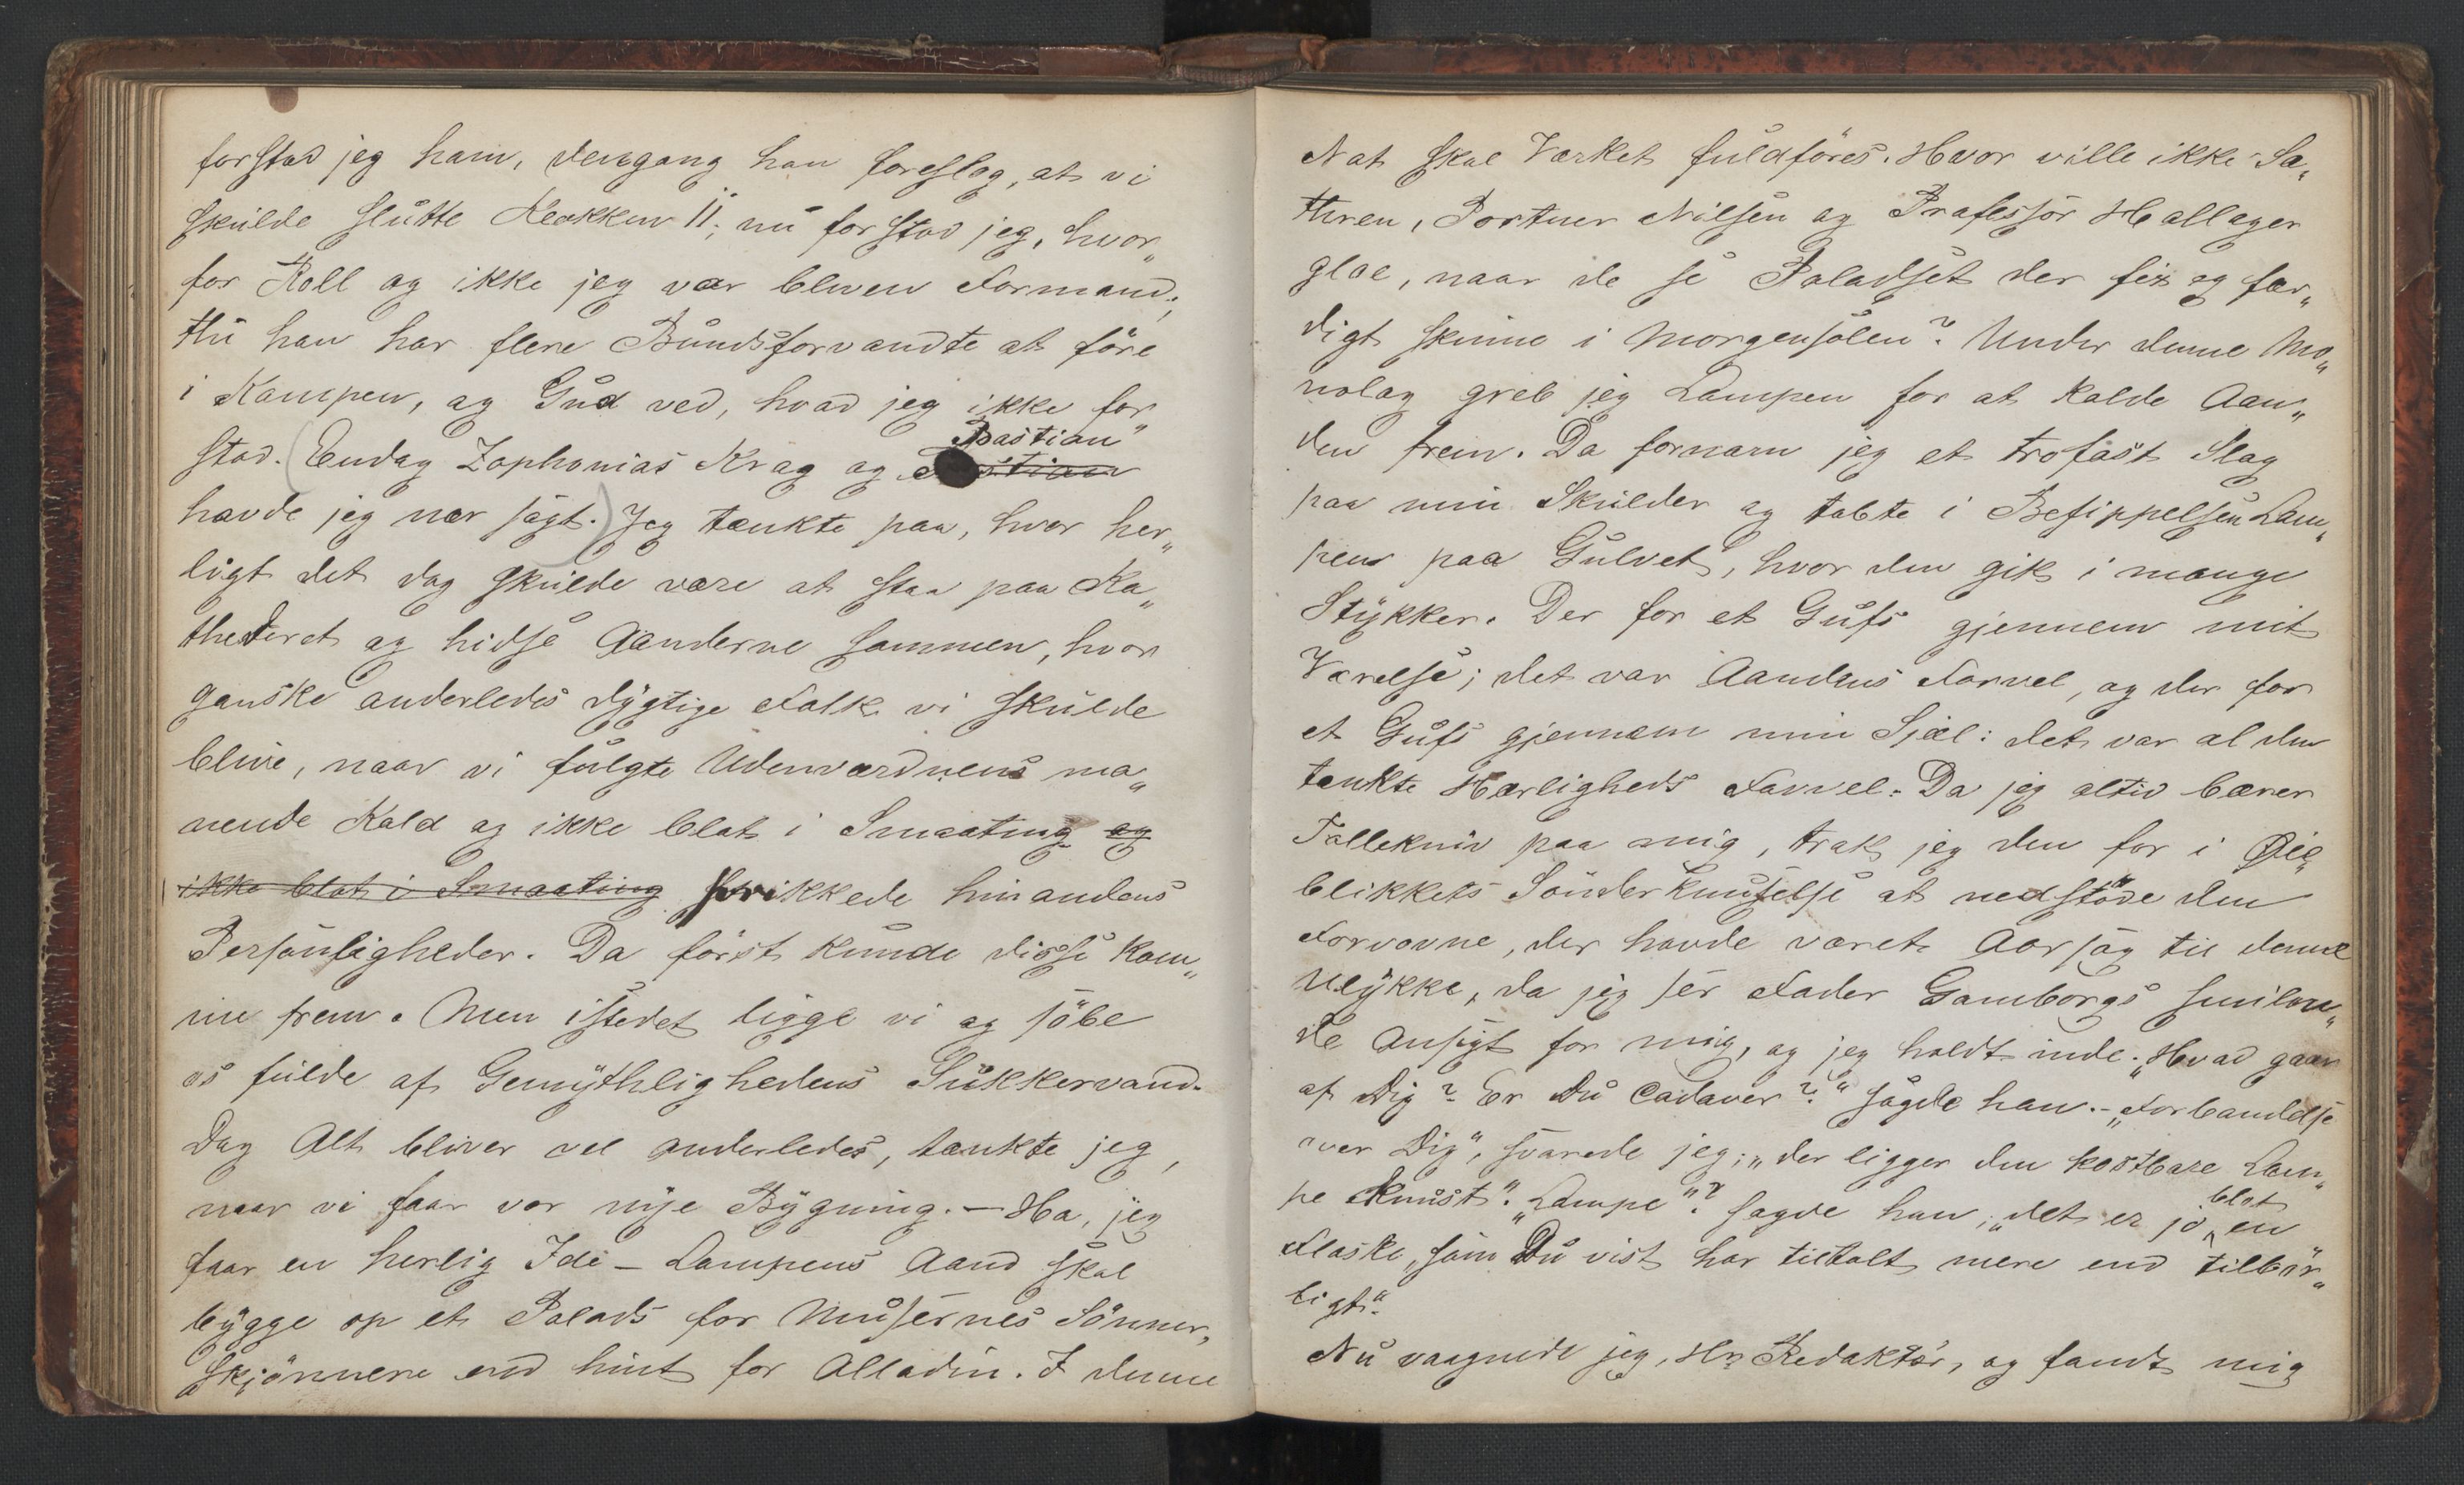 forstod jeg ham, dengang han foreslog, at vi
skulde slutte Klokken 11; nu forstod jeg, hvor„
for Koll og ikke jeg var bleven Formand;
thi han har flere Bundsforvandte at føre
i Kampen, og Gud ved, hvad jeg ikke for„
Bastian
stod. (Endog Zophonias Krag og Bastian
havde jeg nær sagt.) Jeg tænkte paa, hvor her„
ligt det dog skulde være at staa paa Ka„
thederet og hidse Aanderne sammen, hvor
ganske anderledes dygtige Folk vi skulde
blive, naar vi fulgte Udenverdnens ma„
nende Kald og ikke blot i Smaating og
ikke blot i Smaating prikkede hinandens
Personligheder. Da først kunde disse kom„
me frem. Men istedet ligge vi og søbe
os fulde af Gemythlighedens Sukkervand.
Dog Alt bliver vel anderledes, tænkte jeg,
naar vi faar vor nye Bygning. — Ha, jeg
faar en herlig Ide — Lampens Aand skal
bygge op et Palads for Musernes Sønner,
skjønnere end hint for Alladin. I denne
Nat skal Værket fuldføres. Hvor ville ikke Sa„
thren, Portner Nilsen og Professor Hallager
gloe, naar de se Paladset der fix og fær„
digt skinne i Morgensolen? Under denne Mo„
nolog greb jeg Lampen for at kalde Aan„
den frem. Da fornam jeg et trofast Slag
paa min Skulder og tabte i Befippelsen Lam„
pen paa Gulvet, hvor den gik i mange
Stykker. Der for et Gufs gjennem mit
Værelse; det var Aandens Farvel, og der for
et Gufs gjennem min Sjæl: det var al den
tænkte Herligheds Farvel. Da jeg altid bærer
Tollekniv paa mig, trak jeg den for i Øie„
blikkets Sønderknuselse at nedstøde den
Forvovne, der havde været Aarsag til denne
Ulykke, da jeg ser Fader Gamborgs smilen„
de Ansigt for mig, og jeg holdt inde. „Hvad gaar
af Dig? Er Du Cadaver?“ sagde han. – „Forbandelse
over Dig“, svarede jeg; „der ligger den kostbare Lam„
pe knust“. „Lampe“? sagde han; „det er jo
blot
en
Flaske, som Du vist har tiltalt mere end tilbør„
ligt“.
Nu vaagnede jeg, Hr. Redaktør, og fandt mig